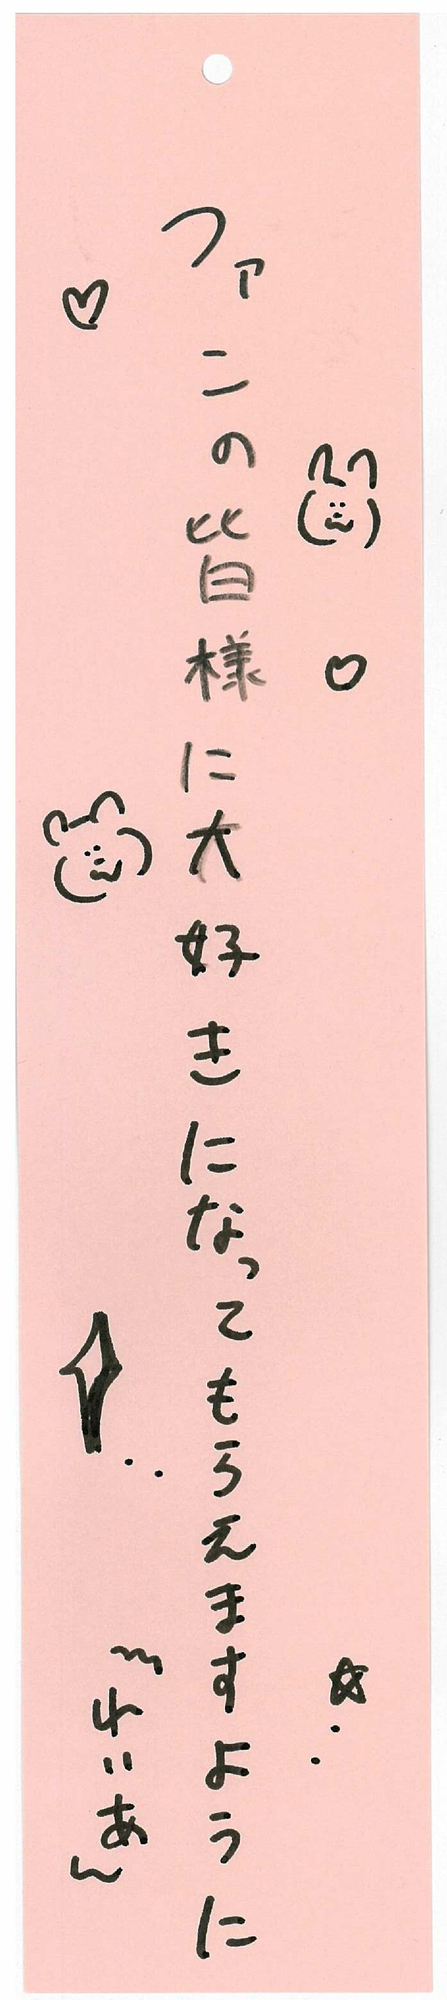 ファンの皆様に大好きになってもらえますように
れいあ